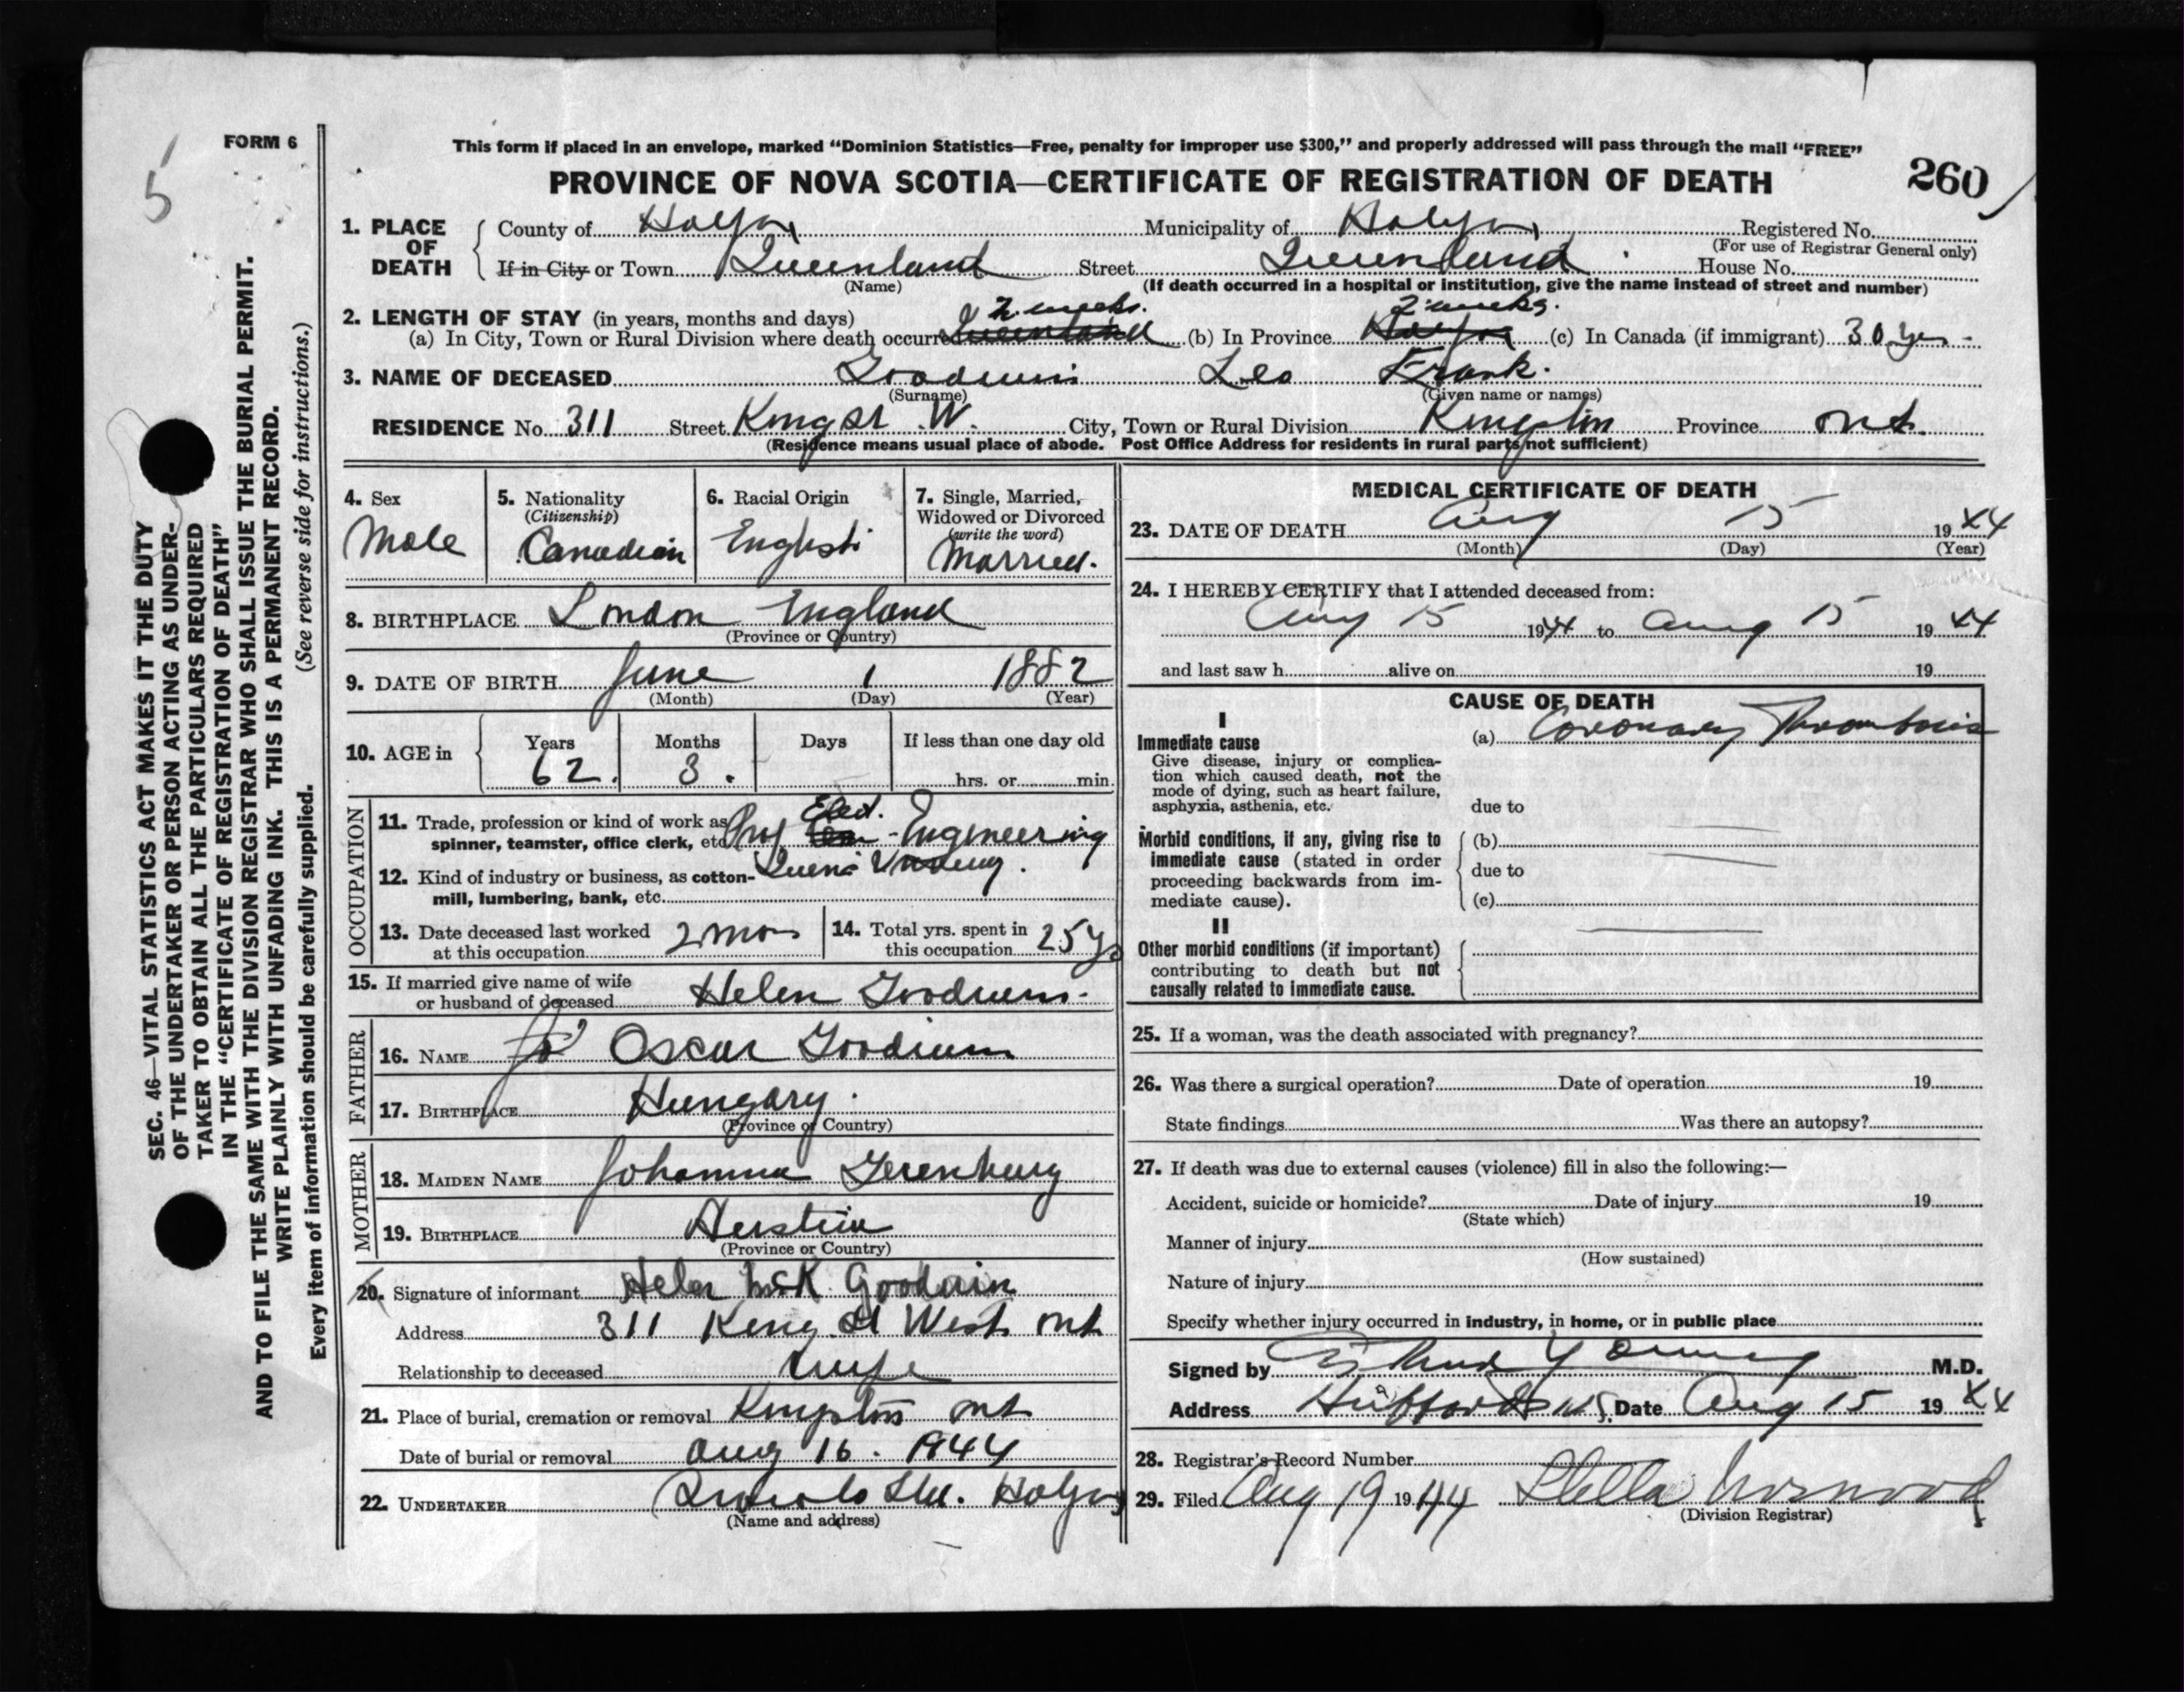 FORM 6
5
This form if placed in an envelope, marked “Dominion Statistics—Free, penalty for improper use $300,” and properly addressed will pass through the mail “FREE”
PROVINCE OF NOVA SCOTIA—CERTIFICATE OF REGISTRATION OF DEATH 260
1. PLACE OF DEATH
County of Halifax Municipality of Halifax Registered No.
(For use of Registrar General only)
If in City or Town Queensland Street Queensland House No.
(Name) (If death occurred in a hospital or institution, give the name instead of street and number)
2 weeks. 2 weeks.
2. LENGTH OF STAY (in years, months and days)
(a) In City, Town or Rural Division where death occurred Queensland (b) In Province Halifax (c) In Canada (if immigrant) 30 yrs
3. NAME OF DECEASED Goodwin Leo Frank.
(Surname) (Given name or names)
RESIDENCE No. 311 Street King St. W. City, Town or Rural Division Kingston Province Ont.
(Residence means usual place of abode. Post Office Address for residents in rural parts not sufficient)
4. Sex
Male
5. Nationality
(Citizenship)
Canadian
6. Racial Origin
English
7. Single, Married,
Widowed or Divorced
(write the word)
Married.
8. BIRTHPLACE London England
(Province or Country)
9. DATE OF BIRTH June 1 1882
(Month) (Day) (Year)
10. AGE in Years Months Days If less than one day old
62. 3. hrs. or min.
OCCUPATION
Elect.
11. Trade, profession or kind of work as Prof Engineering
spinner, teamster, office clerk, etc.
12. Kind of industry or business, as cotton- Queens
mill, lumbering, bank, etc.
13. Date deceased last worked 2 mos
at this occupation
14. Total yrs. spent in
this occupation 25 yrs
15. If married give name of wife
or husband of deceased Helen Goodwin.
FATHER
16. NAME Oscar Goodwin
17. BIRTHPLACE Hungary.
(Province or Country)
MOTHER
18. MAIDEN NAME Johanna
19. BIRTHPLACE
(Province or Country)
20. Signature of informant Helen McK. Goodwin
Address 311 King St West Ont
Relationship to deceased Wife
21. Place of burial, cremation or removal Kingston Ont
Date of burial or removal Aug 16. 1944
22. UNDERTAKER Ltd. Halifax
(Name and address)
MEDICAL CERTIFICATE OF DEATH
23. DATE OF DEATH Aug 15 1944
(Month) (Day) (Year)
24. I HEREBY CERTIFY that I attended deceased from:
Aug 15 1944 to Aug 15 1944
and last saw h alive on 19
CAUSE OF DEATH
I
Immediate cause (a) Coronary Thrombosis
Give disease, injury or complica-
tion which caused death, not the
mode of dying, such as heart failure,
asphyxia, asthenia, etc. due to
Morbid conditions, if any, giving rise to (b)
immediate cause (stated in order
proceeding backwards from im- due to
mediate cause). (c)
II
Other morbid conditions (if important)
contributing to death but not
causally related to immediate cause.
25. If a woman, was the death associated with pregnancy?
26. Was there a surgical operation? Date of operation 19
State findings Was there an autopsy?
27. If death was due to external causes (violence) fill in also the following:—
Accident, suicide or homicide? Date of injury 19
(State which)
Manner of injury
(How sustained)
Nature of injury
Specify whether injury occurred in industry, in home, or in public place
Signed by Young M.D.
Address N.S. Date Aug 15 1944
28. Registrar's Record Number
29. Filed Aug 19 1944 Stella Norwood
(Division Registrar)
SEC. 46—VITAL STATISTICS ACT MAKES IT THE DUTY
OF THE UNDERTAKER OR PERSON ACTING AS UNDER-
TAKER TO OBTAIN ALL THE PARTICULARS REQUIRED
IN THE “CERTIFICATE OF REGISTRATION OF DEATH”
AND TO FILE THE SAME WITH THE DIVISION REGISTRAR WHO SHALL ISSUE THE BURIAL PERMIT.
WRITE PLAINLY WITH UNFADING INK. THIS IS A PERMANENT RECORD.
Every item of information should be carefully supplied. (See reverse side for instructions.)